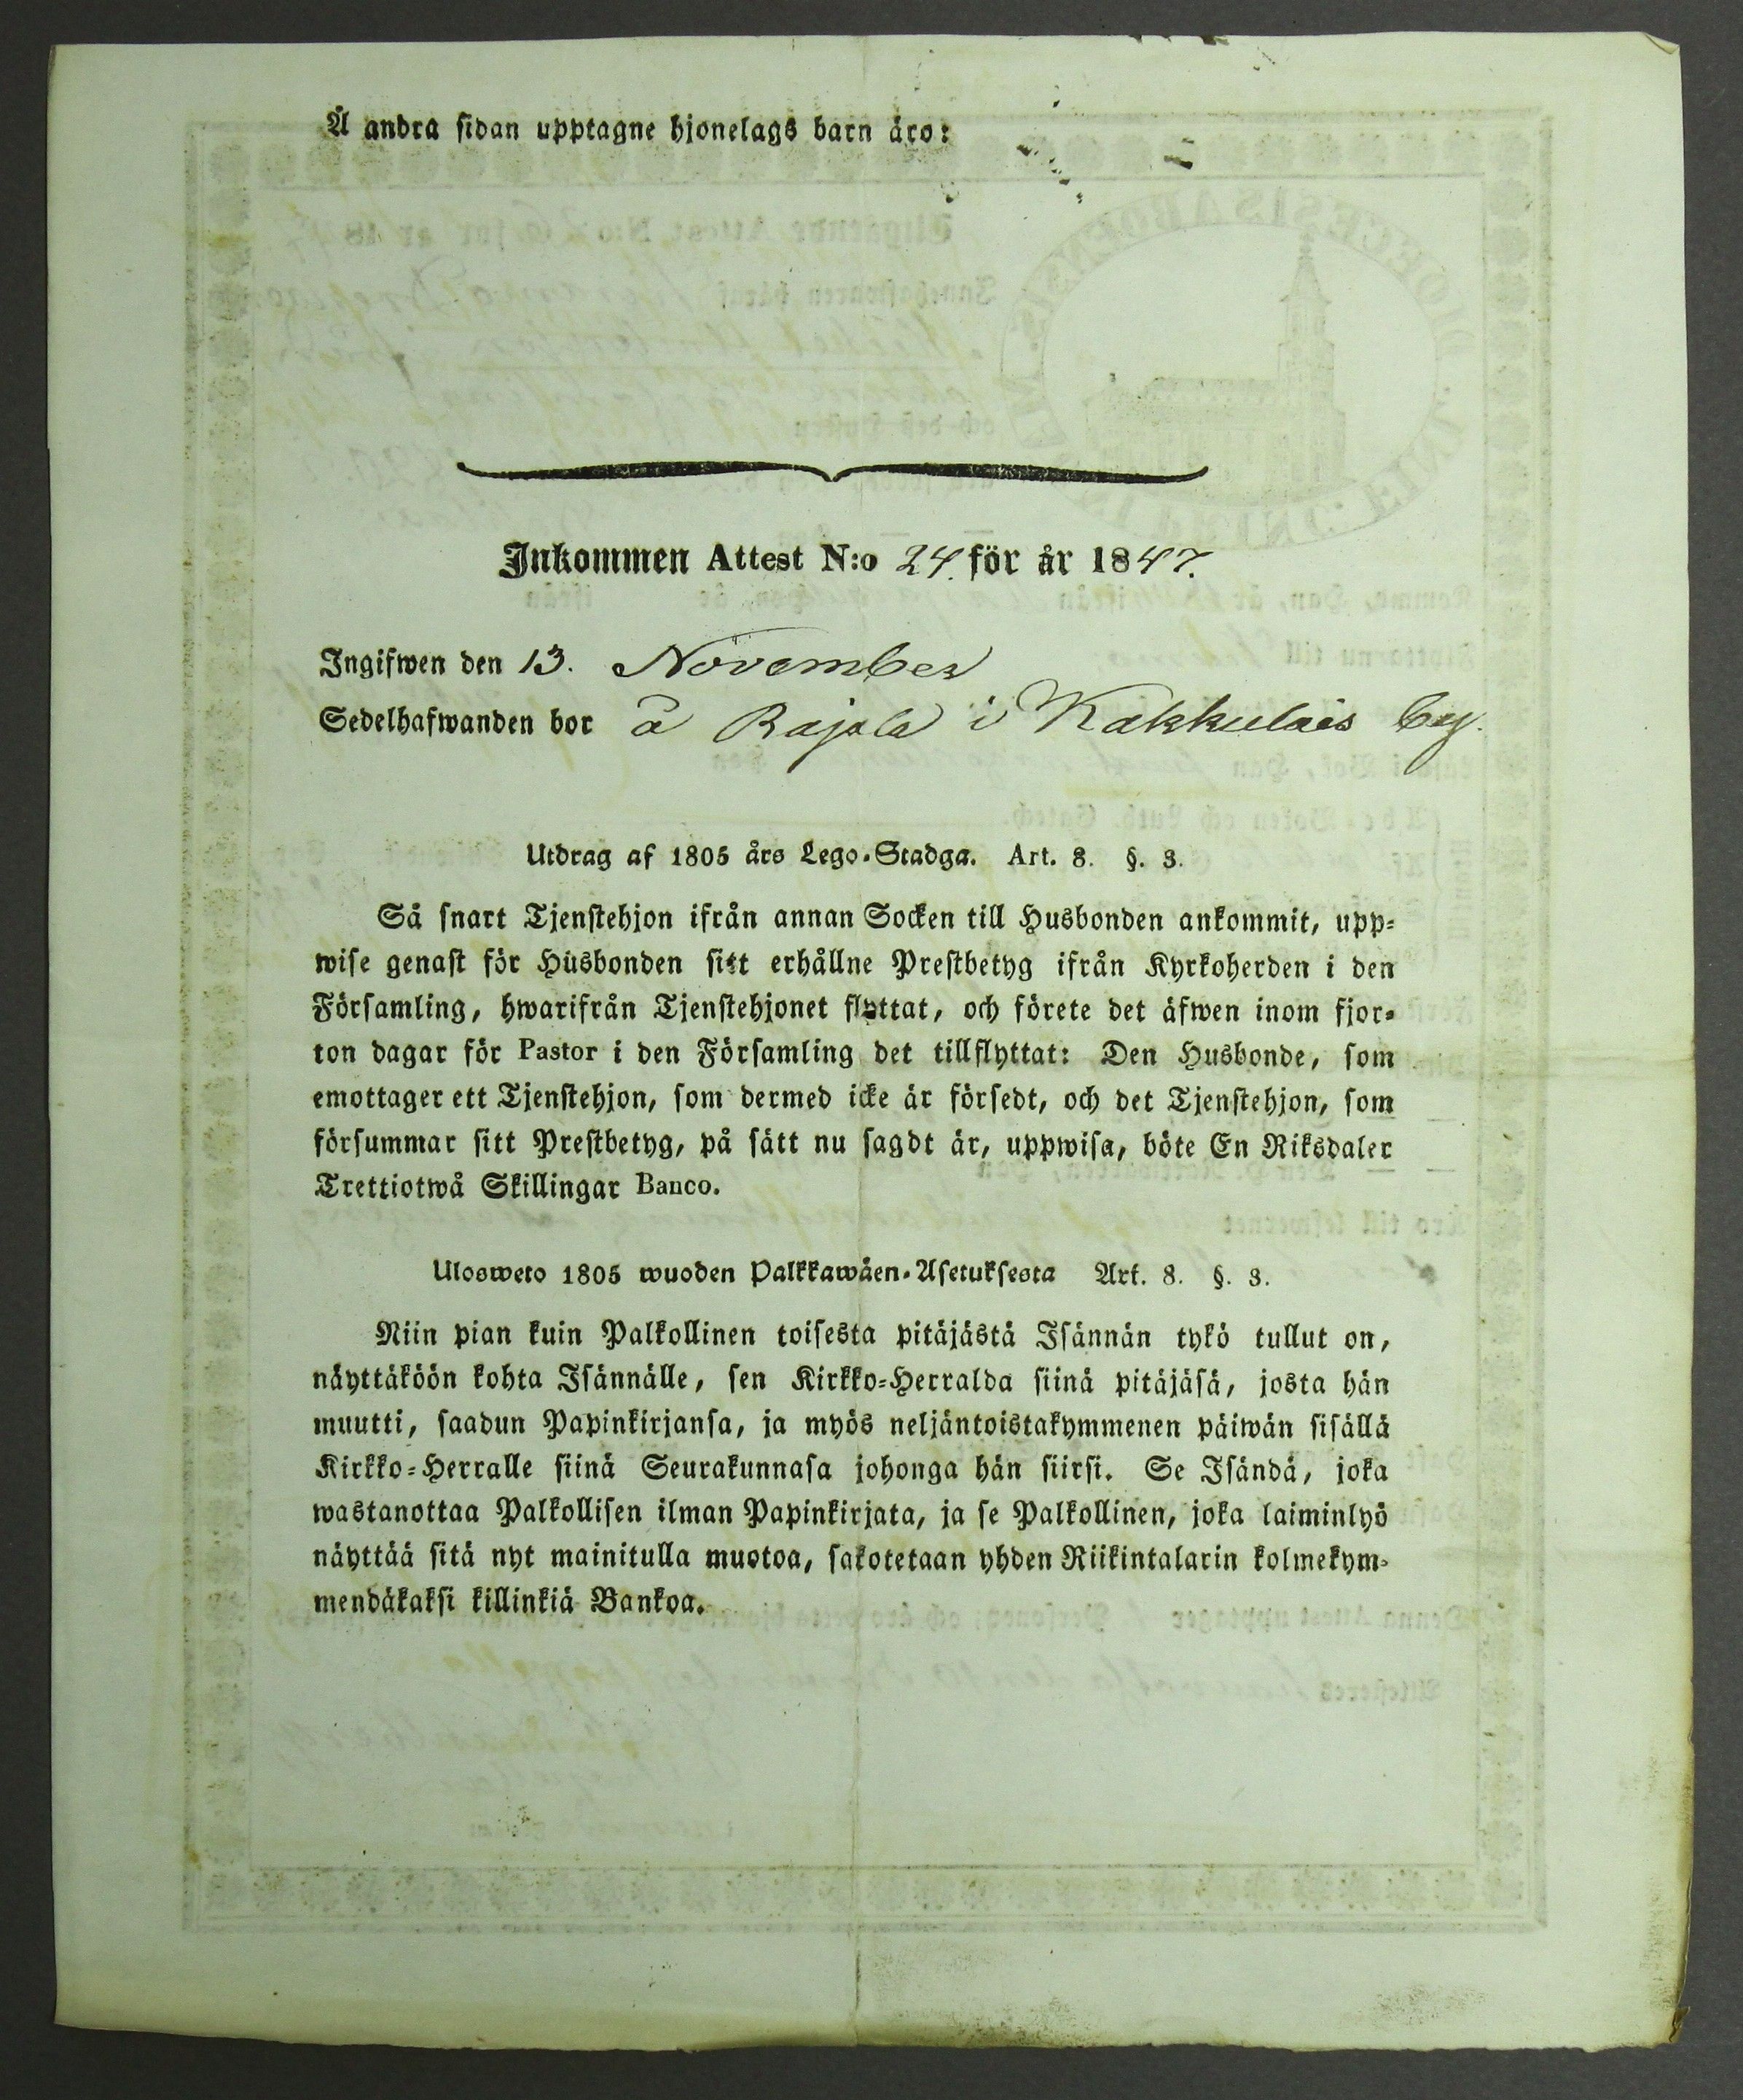 Å andra sidan upptagne hjonelags barn äro:
Inkommen Attest N:o 24. för år 1847.
Ingifwen den 13. November
Sedelhafwanden bor å Rajala i Kakkulais by.
Utdrag af 1805 års Lego-Stadga. Art. 8. §. 3.
Så snart Tjenstehjon ifrån annan Socken till Husbonden ankommit, upp-
wise genast för Husbonden sitt erhållne Prestbetyg ifrån Kyrkoherden i den
Församling, hwarifrån Tjenstehjonet flyttat, och förete det äfwen inom fjor-
ton dagar för Pastor i den Församling det tillflyttat: Den Husbonde, som
emottager ett Tjenstehjon, som dermed icke är försedt, och det Tjenstehjon, som
försummar sitt Prestbetyg, på sätt nu sagdt är, uppwisa, böte En Riksdaler
Trettiotwå Skillingar Banco.
Ulosweto 1805 wuoden Palkkawäen-Asetuksesta Art. 8. §. 3.
Niin pian kuin Palkollinen toisesta pitäjästä Isännän tykö tullut on,
näyttäköön kohta Isännälle, sen Kirkko-Herralda siinä pitäjäsä, josta hän
muutti, saadun Papinkirjansa, ja myös neljäntoistakymmenen päiwän sisällä
Kirkko-Herralle siinä Seurakunnasa johonga hän siirsi. Se Isändä, joka
wastanottaa Palkollisen ilman Papinkirjata, ja se Palkollinen, joka laiminlyö
näyttää sitä nyt mainitulla muotoa, sakotetaan yhden Riikintalarin kolmekym-
mendäkaksi killinkiä Bankoa.